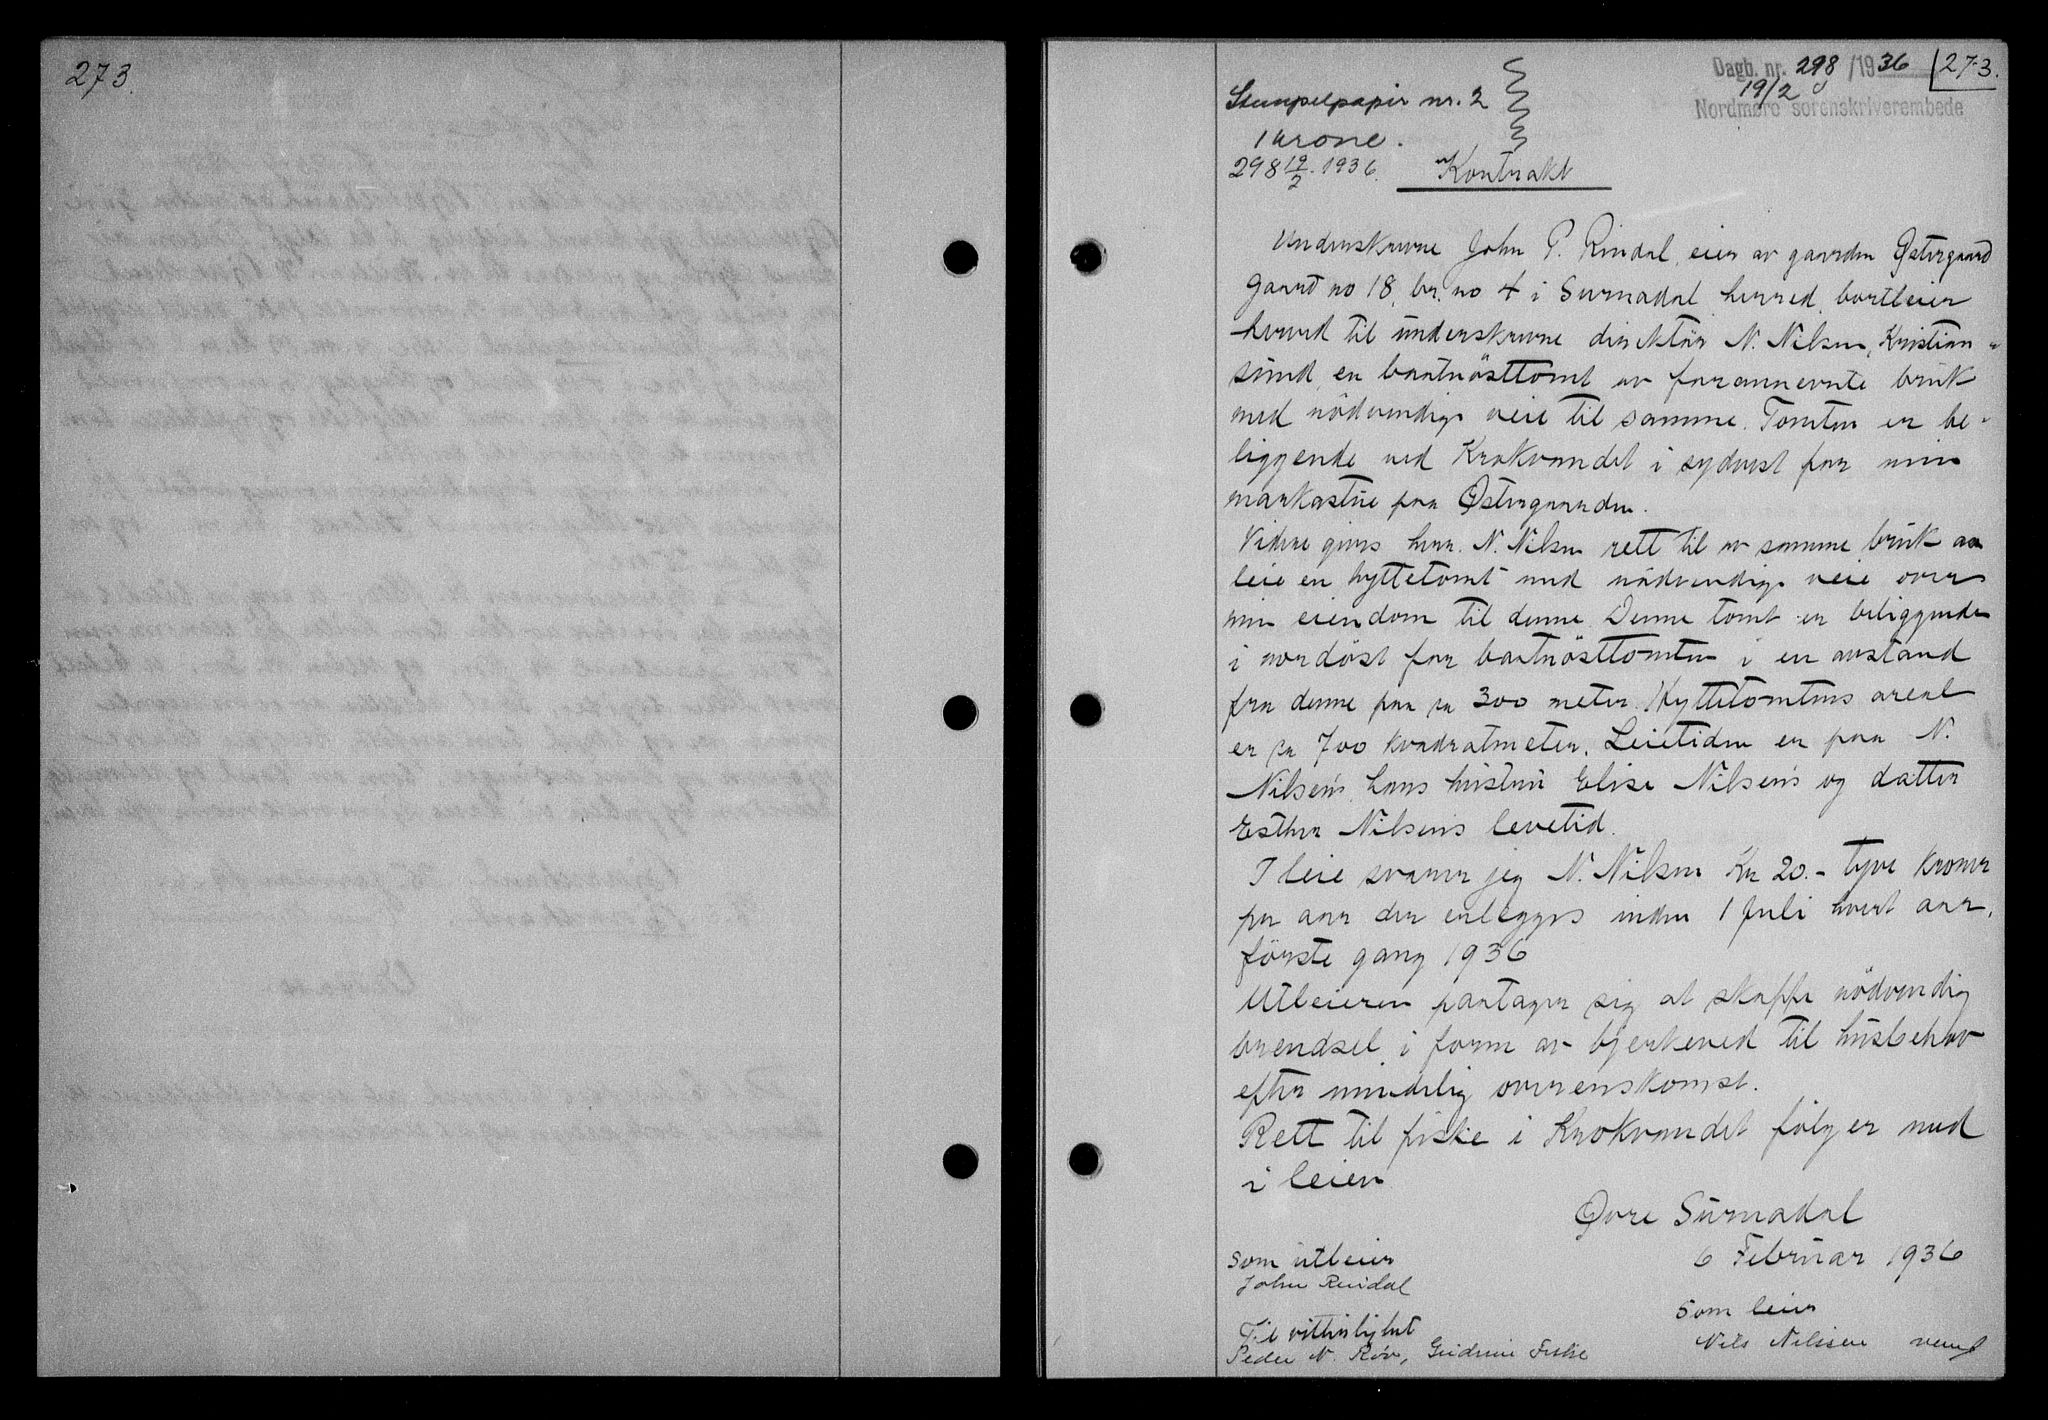 273.
Dagb. nr. 298/1936 273.
19/2
Nordmøre sorenskriverembede
Stempelpapir nr. 2
1 krone.
298 19/2. 1936.
Kontrakt
Underskrevne John P. Rindal, eier av gaarden Østergaard
Gaard no 18, br. no 4 i Surnadal herred, bortleier
herved til underskrevne direktør N. Nilsen, Kristian-
sund, en baatnösttomt av forannevnte bruk
med nödvendige veie til samme. Tomten er be-
liggende ved Krokvandet i sydvest for min
markastue paa Østergaarden.
Videre gives herr. N. Nilsen rett til av samme bruk aa
leie en hyttetomt med nödvendige veie over
min eiendom til denne. Denne tomt er beliggende
i nordöst for baatnösttomten i en avstand
fra denne paa ca 300 meter. Hyttetomtens areal
er ca 700 kvadratmeter. Leietiden er paa N.
Nilsen's, hans hustru Elise Nilsen's og datter
Esther Nilsens levetid.
I leie svarer jeg N. Nilsen Kr 20.- tyve kroner
per aar der erlegges inden 1 Juli hvert aar,
förste gang 1936
Utleieren paatager sig at skaffe nödvendig
brendsel i form av bjerkeved til husbehov
efter mindelig overenskomst.
Rett til fiske i Krokvandet fölger med
i leien
Øvre Surnadal
6 Februar 1936
som utleier
John Rindal
som leier
Nils Nilsen
Til vitterlighet
Peder N. Röv, Gudrun Fiske